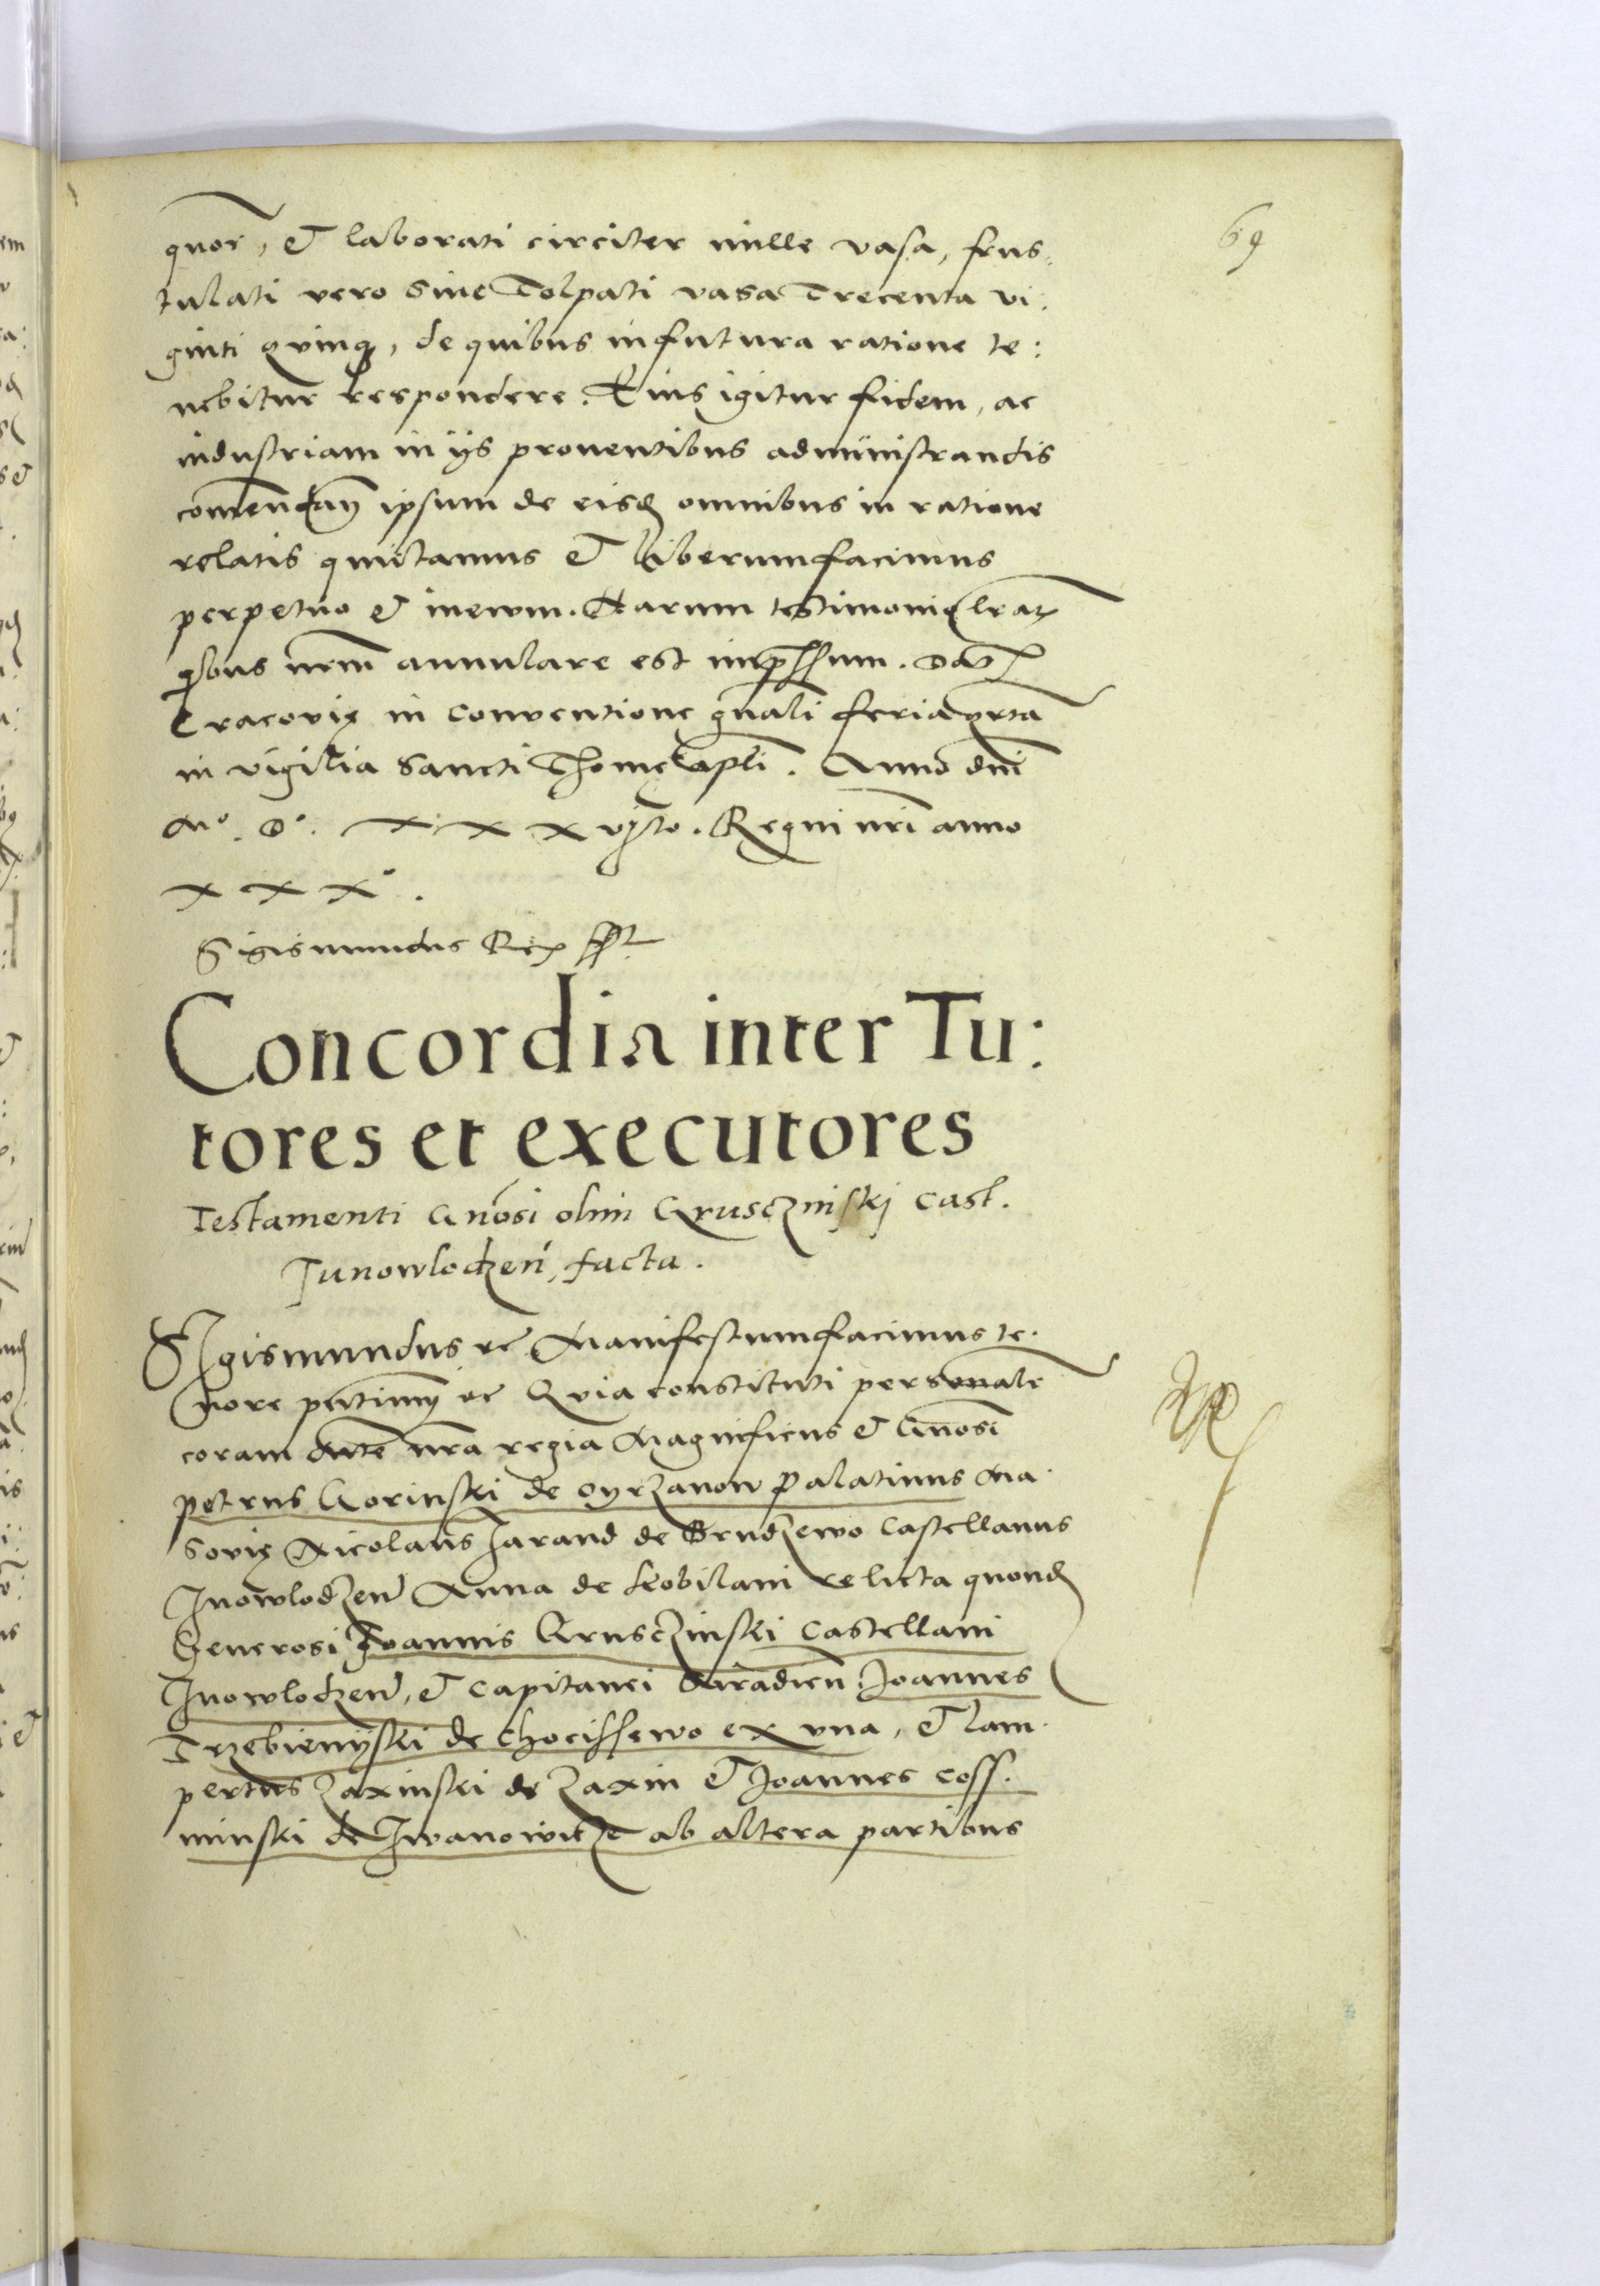 69
quor, et laborati circiter mille vasa, frus:
tulati vero sive Tolpati vasa Trecenta vi:
ginti quinq, de quibus in futura ratione te:
nebitur respondere. Eius igitur fidem, ac
industriam in ijs proventibus administrandis
comendan ipsum de eisd omnibus in ratione
relatis quictamus et liberum facimus
perpetuo et inevum. Harum testimonio lrar
qbus nrm annulare est impssum. Dat
Cracovię in conventione gnali feria qrta
in vigilia Sancti Thomę apli. Anno dni
Mo. Do. XXX vjto. Regni nri anno
XXXo.
Sigismundus Rex sst
Concordia inter Tu:
tores et executores
Testamenti Gnosi olim Grusczinskj Cast.
Junowlodzen, facta.
Sigismundus etc Manifestum facimus te.
nore pntium etc Quia constituti personale
coram Mte nra regia Magnificus et Gnosi
petrus Gorinski de Oyrzanow Palatinus Ma.
sovię Nicolaus Jarand de Brudzewo Castellanus
Jnowlodzen Anna de Kobilani relicta quond
Generosi Joannis Grusczinski Castellani
Jnowlodzen, et Capitanei Siradien Joannes
Trzebienyski de Chocissewo ex una, et Lam.
pertus Zaxinski de Zaxin et Joannes Coss.
minski de Jwanowicze ab altera partibus